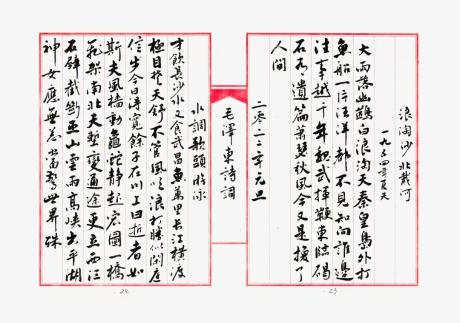 浪淘沙 北戴河
一九五四年夏天
大雨落幽燕白浪滔天秦皇島外打
魚船一片汪洋都不見知向誰邊
往事越千年魏武揮鞭東臨碣
石有遺篇蕭瑟秋風今又是換了
人間
23
二〇二二年元旦
毛澤東詩詞
水調歌頭 游泳
才飲長沙水又食武昌魚萬里長江橫渡
極目楚天舒不管風吹浪打勝似閒庭
信步今日得寬餘子在川上曰逝者如
斯夫風檣動龜蛇靜起宏圖一橋
飛架南北天塹變通途更立西江
石壁截斷巫山雲雨高峽出平湖
神女應無恙當驚世界殊
24